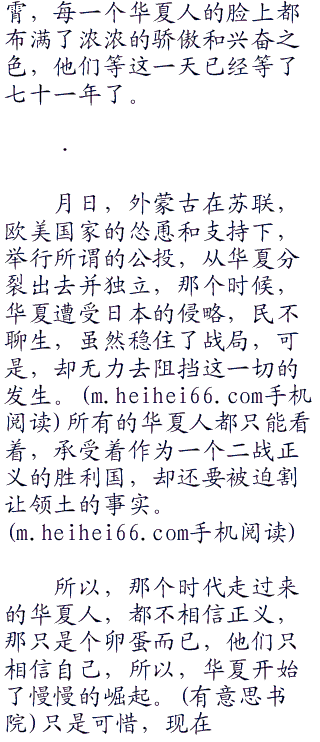 霄，每一个华夏人的脸上都
布满了浓浓的骄傲和兴奋之
色，他们等这一天已经等了
七十一年了。
.
月日，外蒙古在苏联，
欧美国家的怂恿和支持下，
举行所谓的公投，从华夏分
裂出去并独立，那个时候，
华夏遭受日本的侵略，民不
聊生，虽然稳住了战局，可
是，却无力去阻挡这一切的
发生。(m.heihei66.com手机
阅读)所有的华夏人都只能看
着，承受着作为一个二战正
义的胜利国，却还要被迫割
让领土的事实。
(m.heihei66.com手机阅读)
所以，那个时代走过来
的华夏人，都不相信正义，
那只是个卵蛋而已，他们只
相信自己，所以，华夏开始
了慢慢的崛起。(有意思书
院)只是可惜，现在